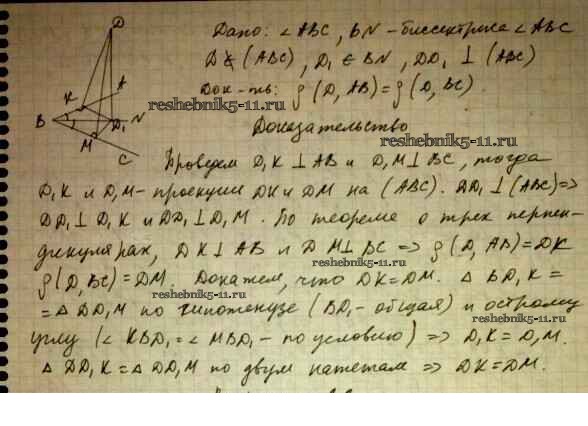 D
A
K
B D₁ N
M
C
Дано: ∠ABC, BN - биссектриса ∠ABC
D ∉ (ABC), D₁ ∈ BN, DD₁ ⊥ (ABC)
Док-ть: ρ(D, AB) = ρ(D, BC).
reshebnik5-11.ru
Доказательство
reshebnik5-11.ru
Проведем D₁K ⊥ AB и D₁M ⊥ BC, тогда
D₁K и D₁M - проекции DK и DM на (ABC). DD₁ ⊥ (ABC) =>
DD₁ ⊥ D₁K и DD₁ ⊥ D₁M. По теореме о трех перпен-
дикулярах, DK ⊥ AB и DM ⊥ BC => ρ(D, AB) = DK
reshebnik5-11.ru
ρ(D, BC) = DM. Докажем, что DK = DM. △ BD₁K =
reshebnik5-11.ru
= △ BD₁M по гипотенузе (BD₁ - общая) и острому
reshebnik5-11.ru
углу (∠KBD₁ = ∠MBD₁ - по условию) => D₁K = D₁M.
△ DD₁K = △ DD₁M по двум катетам => DK = DM.